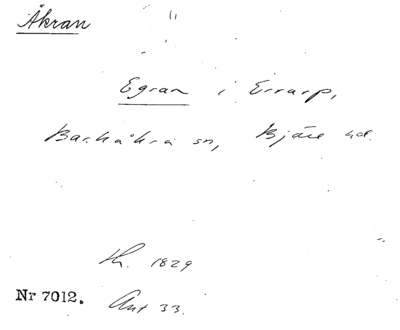 Åkran
Egran i Errarp,
Barkåkra sn, Bjäre hd.
Kh. 1829
Nr 7012. Avt 33.